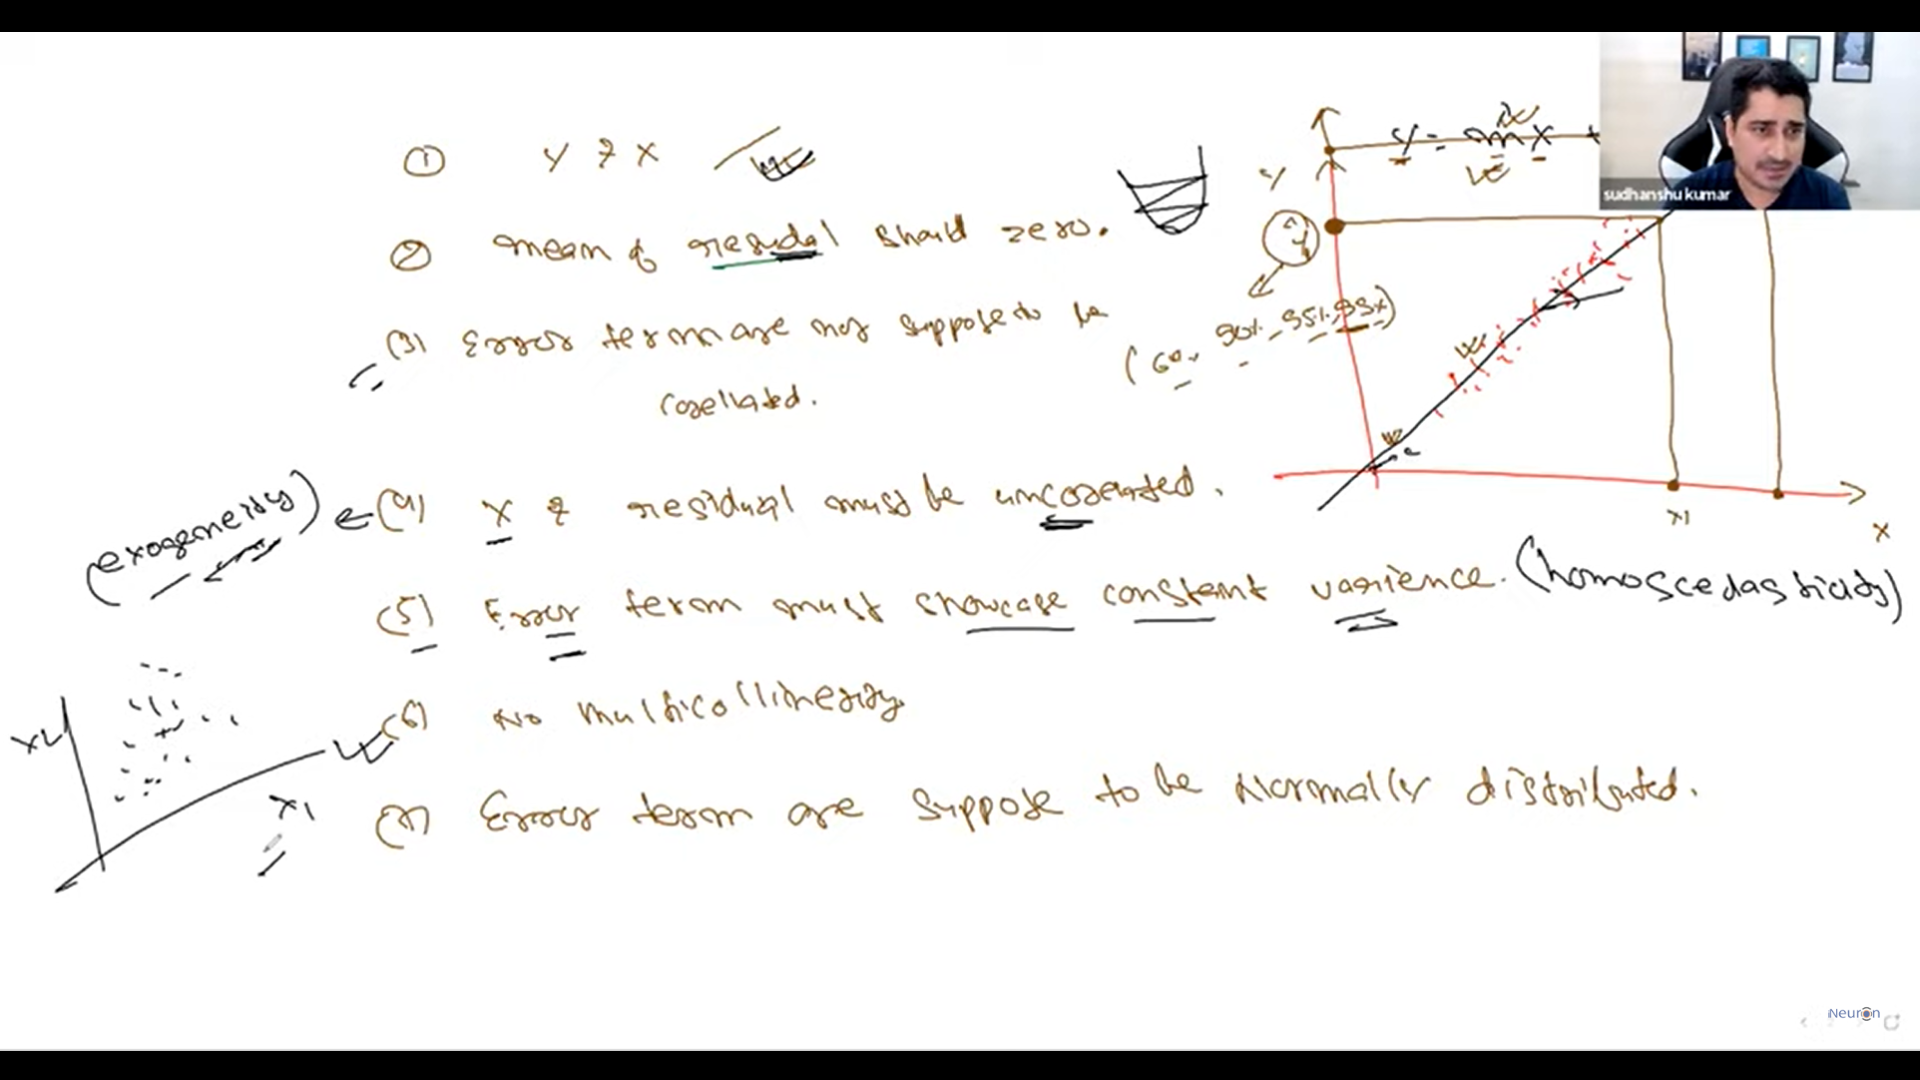 ① y & x
② mean of residal should zero.
(3) Error term are not suppose to be
corellated.
(exogeneity) ← (4) x & residual must be uncorelated.
(5) Error term must showcase constant varience. (homoscedasticity)
(6) No multicollinerity.
(7) Error term are suppose to be Normally distributed.
x2
x1
y = mx +
y
ŷ
(60, 90%, 95%, 99%)
c
x1
x
sudhanshu kumar
iNeuron